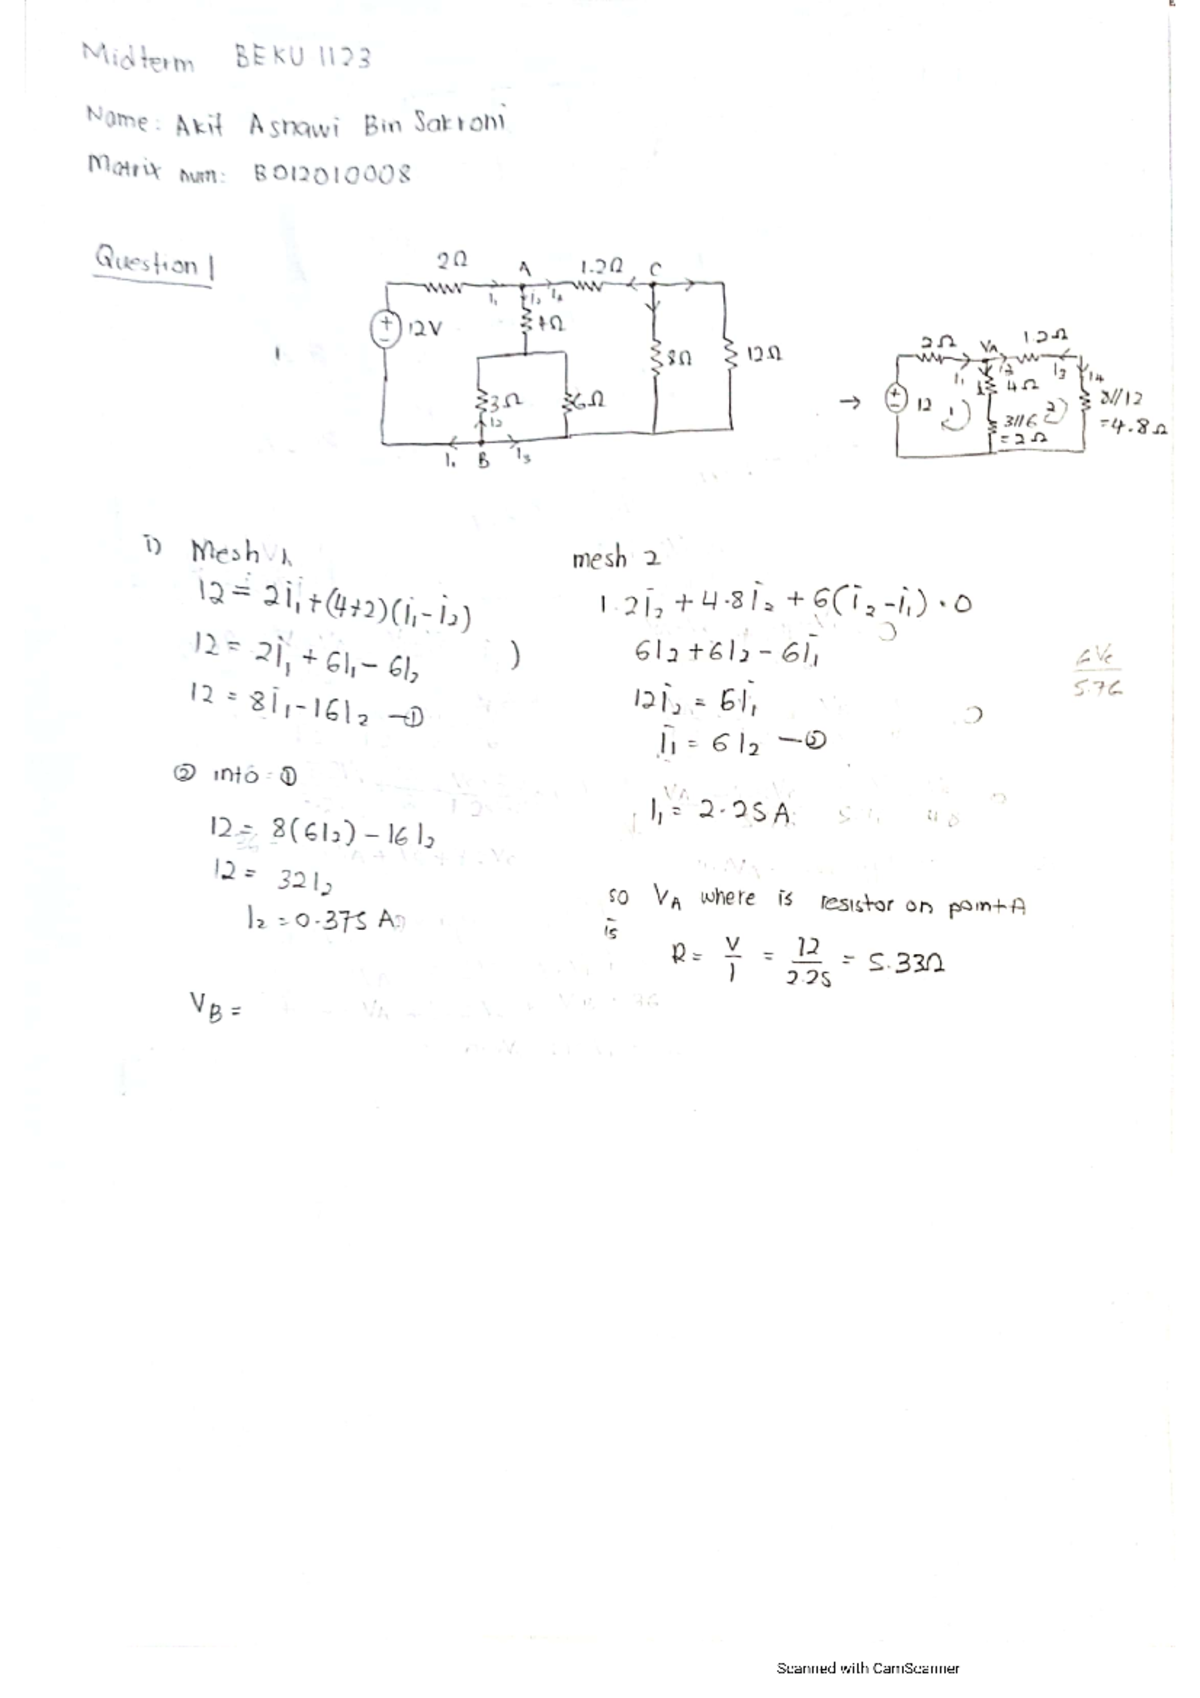 Midterm BEKU 1123
Name: Akif Asnawi Bin Sakroni
Matrix num: B012010008
Question 1
2Ω A 1.2Ω C
I₁ I₂
12V 4Ω
8Ω 12Ω
3Ω 6Ω
I₂
I₁ B I₃
1.
→
2Ω VA 1.2Ω
I₁ I₂ I₃ I₄
12 1) 4Ω 2)
3//6
=2Ω
8//12
=4.8Ω
i) Mesh 1
12 = 2i₁+(4+2)(i₁-i₂)
12 = 2i₁ + 6I₁ - 6I₂
12 = 8i₁-16I₂ —①
② into ①
12 = 8(6I₂) - 16I₂
12 = 32I₂
I₂ = 0.375 A
VB =
mesh 2
1.2i₂ + 4.8i₂ + 6(i₂-i₁) = 0
6I₂+6I₂ - 6i₁
12i₂ = 6i₁
i₁ = 6I₂ —②
I₁ = 2.25 A
so VA where is resistor on point A
is
R = V/I = 12/2.25 = 5.33Ω
Scanned with CamScanner